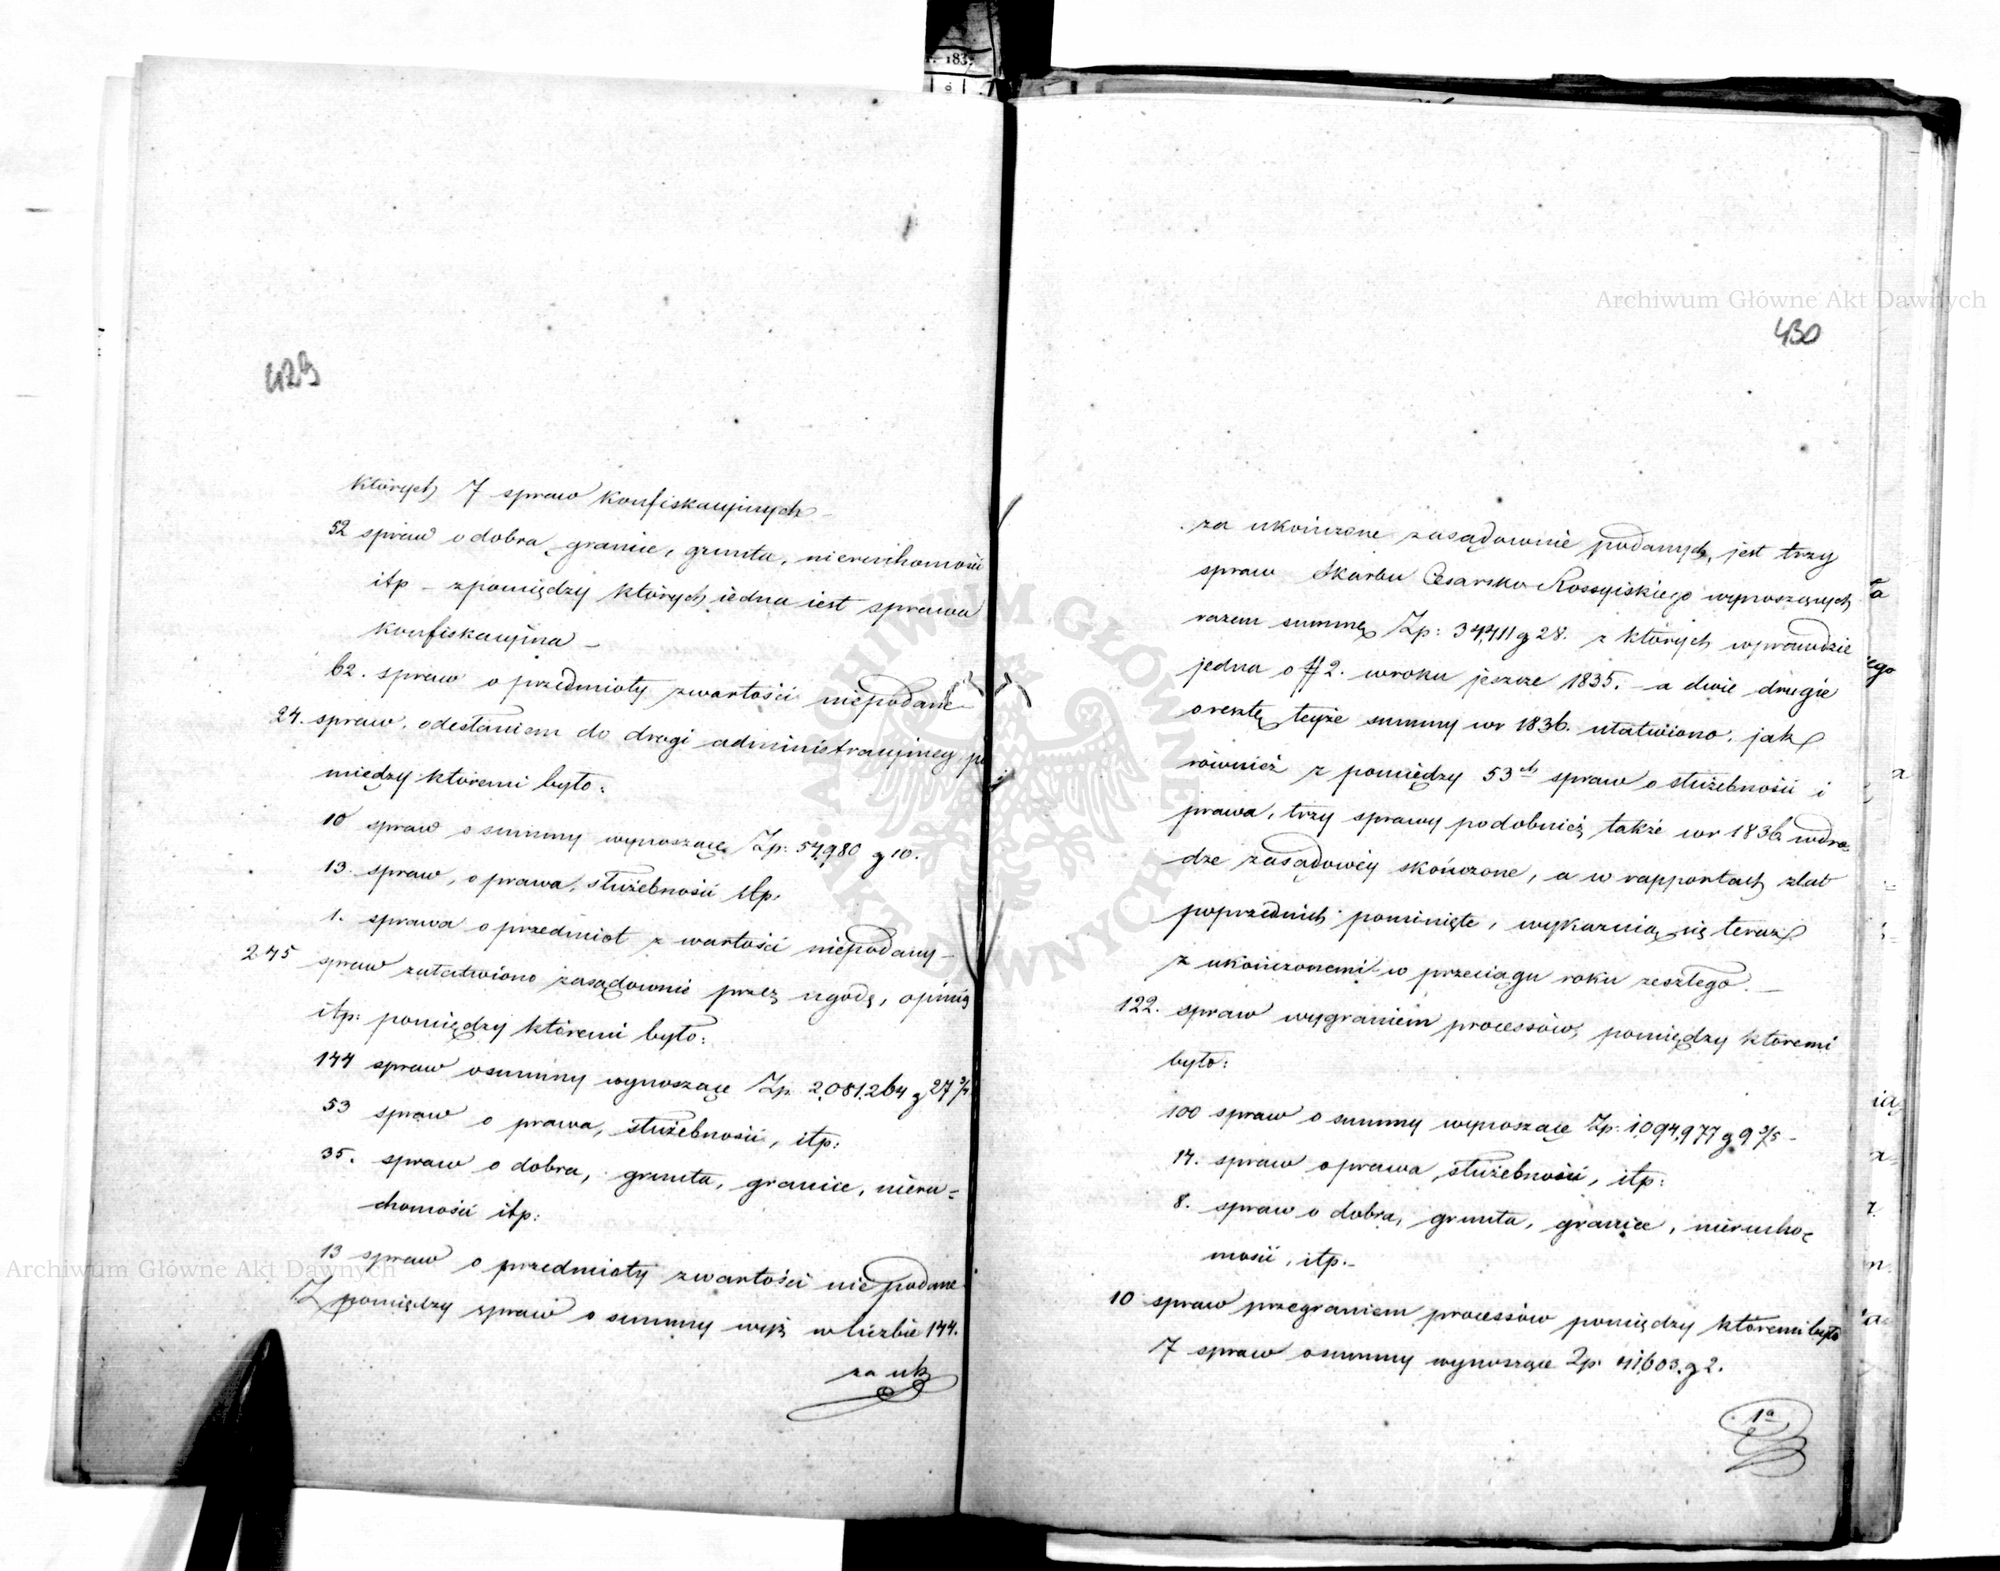 429
których 7 spraw konfiskacyjnych –
52 spraw o dobra, granice, grunta, nieruchomości
itp – z pomiędzy których iedna iest sprawa
konfiskacyjna –
62. spraw o przedmioty z wartości niepodane –
24. spraw, odesłaniem do drogi administracyjney po
między któremi było:
10 spraw o summy wynoszące Zp: 54,980 g 10.
13. spraw, o prawa, służebności itp.
1. sprawa o przedmiot z wartości niepodany –
245 spraw załatwiono zasądownie przez ugodę, opinię
itp: pomiędzy któremi było:
144 spraw o summy wynoszące Zp. 2,081,264 g 27
53 spraw o prawa, służebności, itp:
35. spraw o dobra, grunta, granice, nieru=
chomości itp:
13 spraw o przedmioty z wartości nie podane
Z pomiędzy spraw o summy wyż w liczbie 144.
za uk
430
za ukończone zasądownie podanych, jest trzy
spraw Skarbu Cesarsko Rossyiskiego wynoszących
razem summę Zp: 34,411 g 28. z których wprawdzie
jedna o # 2. w roku jeszcze 1835. – a dwie drugie
o resztę teyże summy w r 1836. ułatwiono, jak
również z pomiędzy 53ch spraw o służebności i
prawa, trzy sprawy podobnież także w r 1836 w dro=
dze zasądowéy skończone, a w rapportach z lat
poprzednich pominięte, wykazują się teraz
z ukończonemi w przeciągu roku zeszłego. –
122. spraw wygraniem processów, pomiędzy któremi
było:
100 spraw o summy wynoszące Zp: 1,094,977 g 9 3/5 –
14. spraw o prawa, służebności, itp:
8. spraw o dobra, grunta, granice, nierucho=
mości, itp. –
10 spraw przegraniem processów pomiędzy któremi było
7 spraw o summy wynoszące Zp. 41,603. g 2.
1a
Archiwum Główne Akt Dawnych
Archiwum Główne Akt Dawnych
ARCHIWUM GŁÓWNE
AKT DAWNYCH